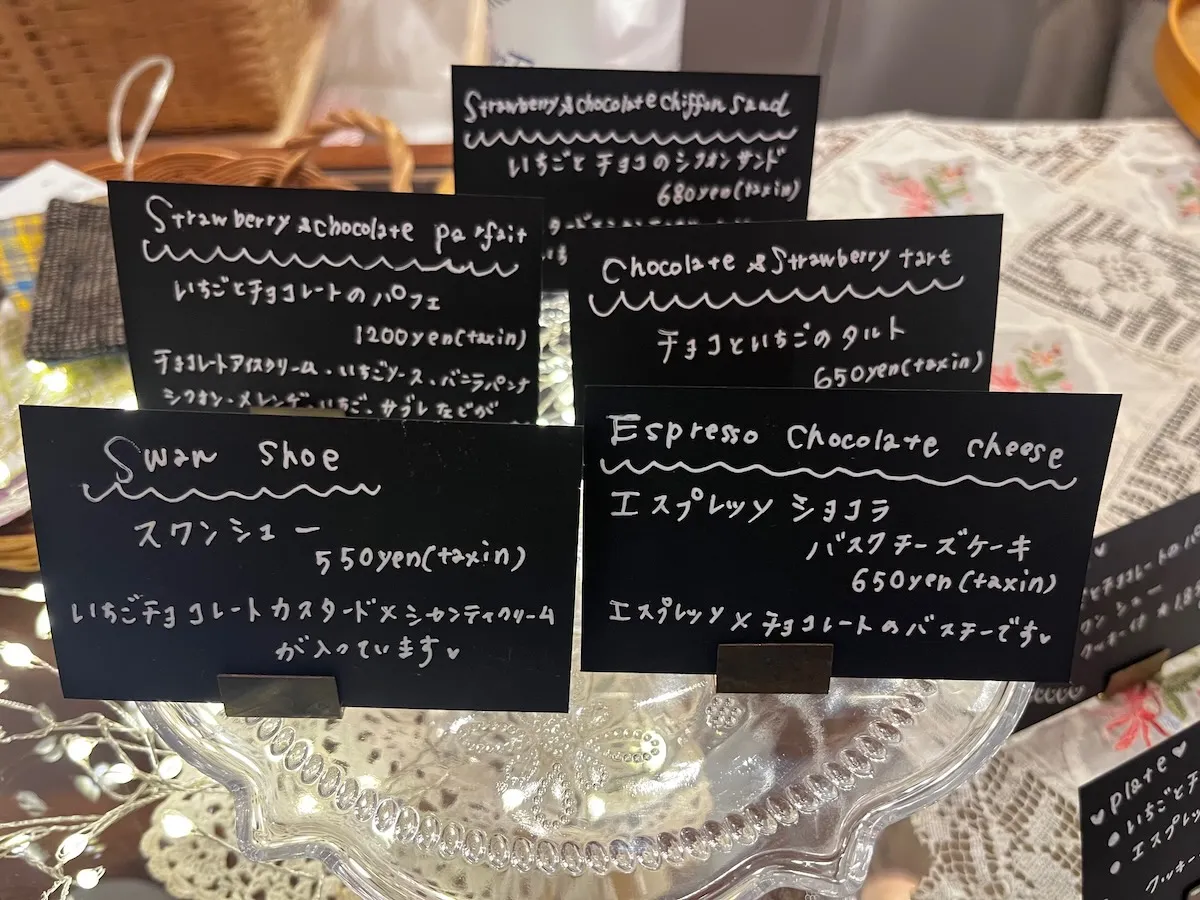 Strawberry & chocolate chiffon sand
いちごとチョコのシフォンサンド
680yen(taxin)
Strawberry & chocolate parfait
いちごとチョコレートのパフェ
1200yen(taxin)
チョコレートアイスクリーム、いちごソース、バニラパンナ
シフォン・メレンゲ・いちご、サブレなどが
Chocolate & Strawberry tart
チョコといちごのタルト
650yen(taxin)
Swan Shoe
スワンシュー
550yen(taxin)
いちごチョコレートカスタード×シャンティクリーム
が入っています♥
Espresso chocolate cheese
エスプレッソショコラ
バスクチーズケーキ
650yen(taxin)
エスプレッソ×チョコレートのバスチーです♥
♥plate♥